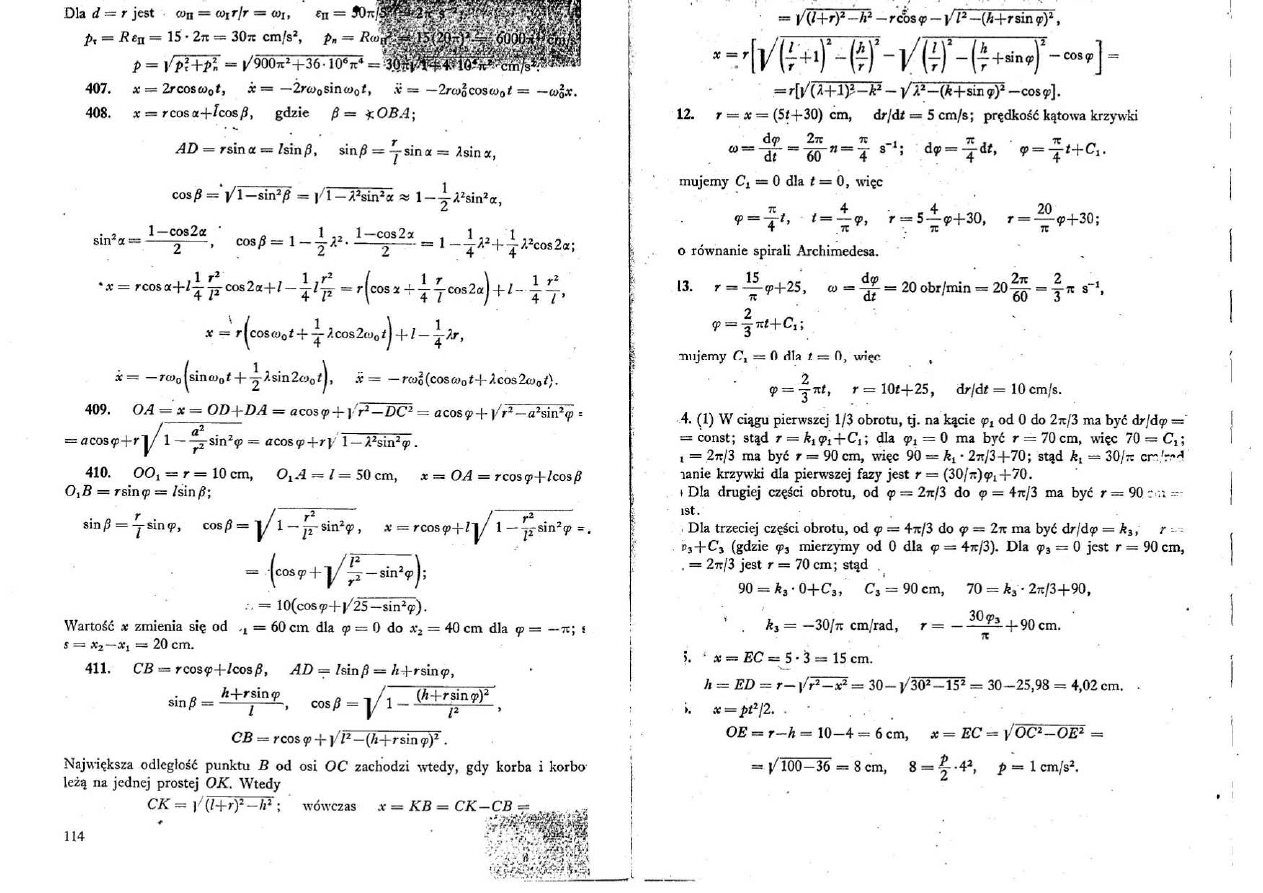 Dla d = r jest ω_II = ω_I r/r = ω_I, ε_II =
p_τ = Rε_II = 15 · 2π = 30π cm/s², p_n =
p = √(p_τ²+p_n²) = √(900π²+36·10⁶π⁴) =
407. x = 2r cos ω₀t, ẋ = −2rω₀ sin ω₀t, ẍ = −2rω₀² cos ω₀t = −ω₀²x.
408. x = r cos α + l cos β, gdzie β = ∢OBA;
AD = r sin α = l sin β, sin β = r/l sin α = λ sin α,
cos β = √(1−sin²β) = √(1−λ²sin²α) ≈ 1 − 1/2 λ²sin²α,
sin²α = (1−cos2α)/2, cos β = 1 − 1/2 λ² · (1−cos2α)/2 = 1 − 1/4 λ² + 1/4 λ²cos2α;
x = r cos α + l 1/4 r²/l² cos2α + l − 1/4 l r²/l² = r(cos α + 1/4 r/l cos2α) + l − 1/4 r²/l,
x = r(cos ω₀t + 1/4 λcos2ω₀t) + l − 1/4 λr,
ẋ = −rω₀(sin ω₀t + 1/2 λ sin2ω₀t), ẍ = −rω₀²(cos ω₀t + λcos2ω₀t).
409. OA = x = OD+DA = a cos φ + √(r²−DC²) = a cos φ + √(r²−a²sin²φ) =
= a cos φ + r√(1 − a²/r² sin²φ) = a cos φ + r√(1−λ²sin²φ).
410. OO₁ = r = 10 cm, O₁A = l = 50 cm, x = OA = r cos φ + l cos β
O₁B = r sin φ = l sin β;
sin β = r/l sin φ, cos β = √(1 − r²/l² sin²φ), x = r cos φ + l√(1 − r²/l² sin²φ) =
= (cos φ + √(l²/r² − sin²φ));
= 10(cos φ + √(25−sin²φ)).
Wartość x zmienia się od ₁ = 60 cm dla φ = 0 do x₂ = 40 cm dla φ = −π;
s = x₂−x₁ = 20 cm.
411. CB = r cos φ + l cos β, AD = l sin β = h + r sin φ,
sin β = (h+r sin φ)/l, cos β = √(1 − (h+r sin φ)²/l²),
CB = r cos φ + √(l²−(h+r sin φ)²).
Największa odległość punktu B od osi OC zachodzi wtedy, gdy korba i korbo
leżą na jednej prostej OK. Wtedy
CK = √((l+r)²−h²); wówczas x = KB = CK−CB =
114
= √((l+r)²−h²) − r cos φ − √(l²−(h+r sin φ)²),
x = r[√((l/r+1)² − (h/r)²) − √((l/r)² − (h/r+sin φ)²) − cos φ] =
= r[√((λ+1)²−k²) − √(λ²−(k+sin φ)²) − cos φ].
12. r = x = (5t+30) cm, dr/dt = 5 cm/s; prędkość kątowa krzywki
ω = dφ/dt = 2π/60 n = π/4 s⁻¹; dφ = π/4 dt, φ = π/4 t + C₁.
mujemy C₁ = 0 dla t = 0, więc
φ = π/4 t, t = 4/π φ, r = 5 4/π φ+30, r = 20/π φ+30;
o równanie spirali Archimedesa.
13. r = 15/π φ+25, ω = dφ/dt = 20 obr/min = 20 2π/60 = 2/3 π s⁻¹,
φ = 2/3 πt+C₁;
mujemy C₁ = 0 dla t = 0, więc
φ = 2/3 πt, r = 10t+25, dr/dt = 10 cm/s.
4. (1) W ciągu pierwszej 1/3 obrotu, tj. na kącie φ₁ od 0 do 2π/3 ma być dr/dφ =
= const; stąd r = k₁φ₁+C₁; dla φ₁ = 0 ma być r = 70 cm, więc 70 = C₁;
₁ = 2π/3 ma być r = 90 cm, więc 90 = k₁ · 2π/3+70; stąd k₁ = 30/π cm/rad
anie krzywki dla pierwszej fazy jest r = (30/π)φ₁+70.
Dla drugiej części obrotu, od φ = 2π/3 do φ = 4π/3 ma być r = 90
st.
Dla trzeciej części obrotu, od φ = 4π/3 do φ = 2π ma być dr/dφ = k₃, r =
φ₃+C₃ (gdzie φ₃ mierzymy od 0 dla φ = 4π/3). Dla φ₃ = 0 jest r = 90 cm,
= 2π/3 jest r = 70 cm; stąd
90 = k₃ · 0+C₃, C₃ = 90 cm, 70 = k₃ · 2π/3+90,
k₃ = −30/π cm/rad, r = − 30φ₃/π + 90 cm.
5. x = EC = 5 · 3 = 15 cm.
h = ED = r−√(r²−x²) = 30−√(30²−15²) = 30−25,98 = 4,02 cm.
x = pt²/2.
OE = r−h = 10−4 = 6 cm, x = EC = √(OC²−OE²) =
= √(100−36) = 8 cm, 8 = p/2 · 4², p = 1 cm/s².